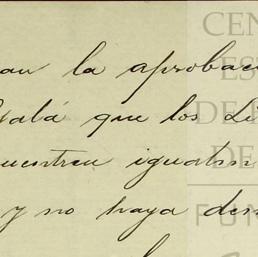 an la aprobac
xalá que los Li
uentren igualm
y no haya den
CEN
ES
DE
DE
FUN